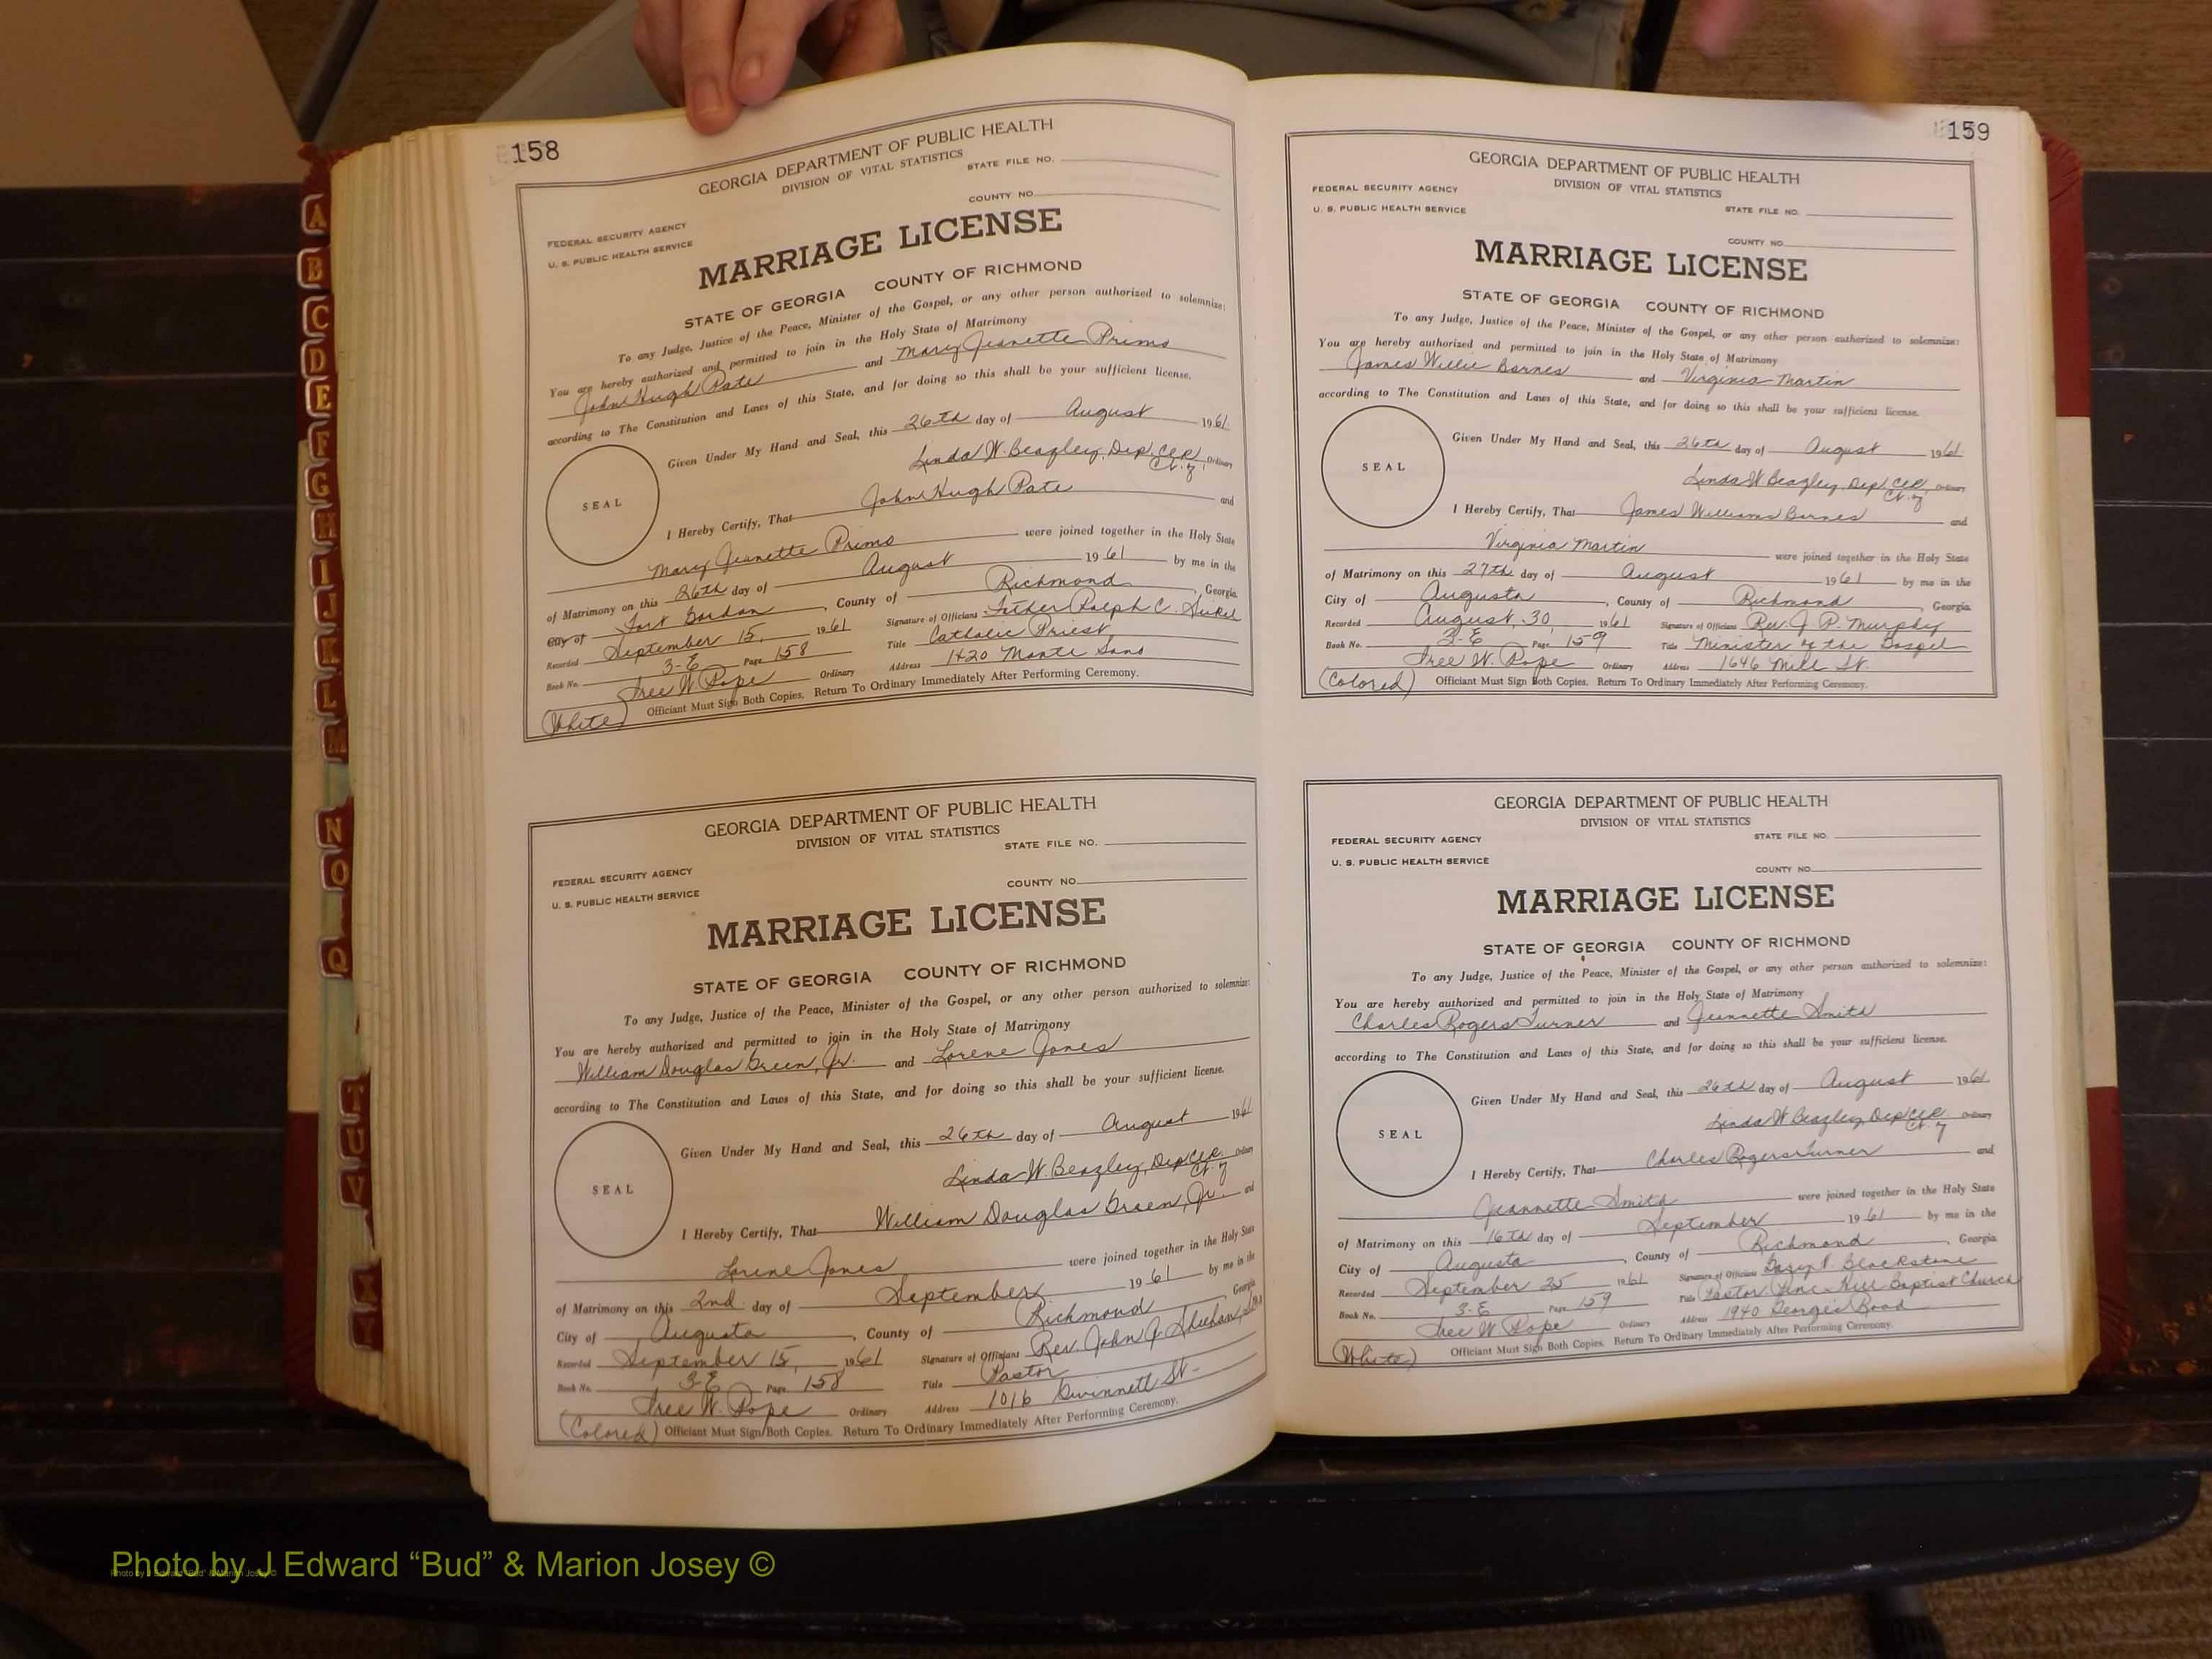 158
GEORGIA DEPARTMENT OF PUBLIC HEALTH
DIVISION OF VITAL STATISTICS
STATE FILE NO.
COUNTY NO.
FEDERAL SECURITY AGENCY
U. S. PUBLIC HEALTH SERVICE
MARRIAGE LICENSE
STATE OF GEORGIA COUNTY OF RICHMOND
To any Judge, Justice of the Peace, Minister of the Gospel, or any other person authorized to solemnize:
You are hereby authorized and permitted to join in the Holy State of Matrimony
John Hugh Pate and Mary Jeanette Primo
according to The Constitution and Laws of this State, and for doing so this shall be your sufficient license.
Given Under My Hand and Seal, this 26th day of August 1961
Linda W. Beazley, Dep. Clk. Ordinary
SEAL
I Hereby Certify, That John Hugh Pate and
Mary Jeanette Primo were joined together in the Holy State
of Matrimony on this 26th day of August 1961 by me in the
City of Fort Gordon, County of Richmond, Georgia.
Recorded September 15, 1961 Signature of Officiant Father Ralph C.
Book No. 3-E Page 158 Title Catholic Priest
Tree W. Pope Ordinary Address 1420 Monte Sano
(White) Officiant Must Sign Both Copies. Return To Ordinary Immediately After Performing Ceremony.
GEORGIA DEPARTMENT OF PUBLIC HEALTH
DIVISION OF VITAL STATISTICS
STATE FILE NO.
FEDERAL SECURITY AGENCY
COUNTY NO.
U. S. PUBLIC HEALTH SERVICE
MARRIAGE LICENSE
STATE OF GEORGIA COUNTY OF RICHMOND
To any Judge, Justice of the Peace, Minister of the Gospel, or any other person authorized to solemnize:
You are hereby authorized and permitted to join in the Holy State of Matrimony
William Douglas Green, Jr. and Lorene Jones
according to The Constitution and Laws of this State, and for doing so this shall be your sufficient license.
Given Under My Hand and Seal, this 26th day of August 1961
Linda W. Beazley, Dep. Clk. Ordinary
SEAL
I Hereby Certify, That William Douglas Green, Jr. and
Lorene Jones were joined together in the Holy State
of Matrimony on this 2nd day of September 1961 by me in the
City of Augusta, County of Richmond, Georgia
Recorded September 15, 1961 Signature of Officiant Rev. John J.
Book No. 3-E Page 158 Title Pastor
Tree W. Pope Ordinary Address 1016 Gwinnett St.
(Colored) Officiant Must Sign Both Copies. Return To Ordinary Immediately After Performing Ceremony.
159
GEORGIA DEPARTMENT OF PUBLIC HEALTH
DIVISION OF VITAL STATISTICS
FEDERAL SECURITY AGENCY
U. S. PUBLIC HEALTH SERVICE
STATE FILE NO.
COUNTY NO.
MARRIAGE LICENSE
STATE OF GEORGIA COUNTY OF RICHMOND
To any Judge, Justice of the Peace, Minister of the Gospel, or any other person authorized to solemnize:
You are hereby authorized and permitted to join in the Holy State of Matrimony
James Willie Barnes and Virginia Martin
according to The Constitution and Laws of this State, and for doing so this shall be your sufficient license.
Given Under My Hand and Seal, this 26th day of August 1961
Linda W. Beazley, Dep. Clk. Ordinary
SEAL
I Hereby Certify, That James Williams Barnes and
Virginia Martin were joined together in the Holy State
of Matrimony on this 27th day of August 1961 by me in the
City of Augusta, County of Richmond, Georgia
Recorded August 30, 1961 Signature of Officiant Rev. J. P. Murphy
Book No. 3-E Page 159 Title Minister of the Gospel
Tree W. Pope Ordinary Address 1646 Mill St.
(Colored) Officiant Must Sign Both Copies. Return To Ordinary Immediately After Performing Ceremony.
GEORGIA DEPARTMENT OF PUBLIC HEALTH
DIVISION OF VITAL STATISTICS
STATE FILE NO.
FEDERAL SECURITY AGENCY
U. S. PUBLIC HEALTH SERVICE
COUNTY NO.
MARRIAGE LICENSE
STATE OF GEORGIA COUNTY OF RICHMOND
To any Judge, Justice of the Peace, Minister of the Gospel, or any other person authorized to solemnize:
You are hereby authorized and permitted to join in the Holy State of Matrimony
Charles Rogers Turner and Jeannette Smith
according to The Constitution and Laws of this State, and for doing so this shall be your sufficient license.
Given Under My Hand and Seal, this 26th day of August 1961
Linda W. Beazley, Dep. Clk. Ordinary
SEAL
I Hereby Certify, That Charles Rogers Turner and
Jeannette Smith were joined together in the Holy State
of Matrimony on this 16th day of September 1961 by me in the
City of Augusta, County of Richmond, Georgia
Recorded September 25 1961 Signature of Officiant Blackstone
Book No. 3-E Page 159 Title Pastor Hill Baptist Church
Tree W. Pope Ordinary Address 1940 Georgia Road
(White) Officiant Must Sign Both Copies. Return To Ordinary Immediately After Performing Ceremony.
A
B
C
D
E
F
G
H
I
J
K
L
M
N
O
Q
T
U
V
Photo by J Edward “Bud” & Marion Josey ©
Photo by J Edward "Bud" & Marion Josey ©